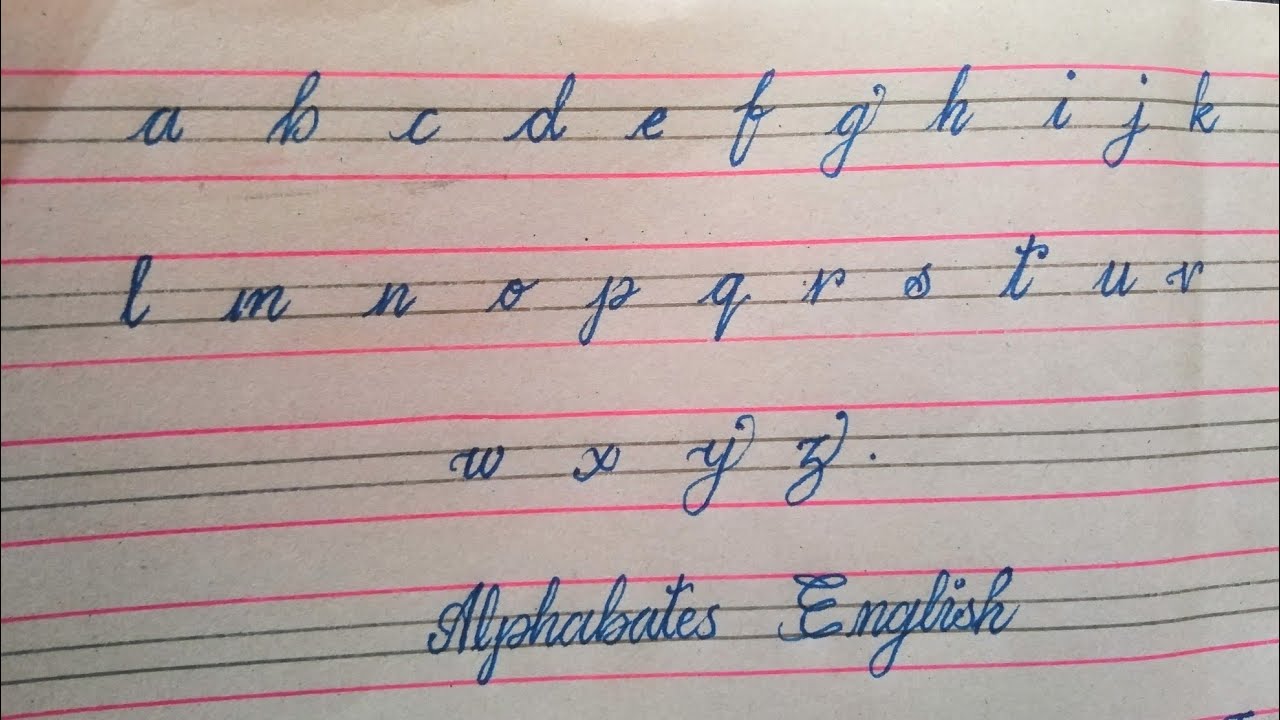 a b c d e f g h i j k
l m n o p q r s t u v
w x y z .
Alphabates English